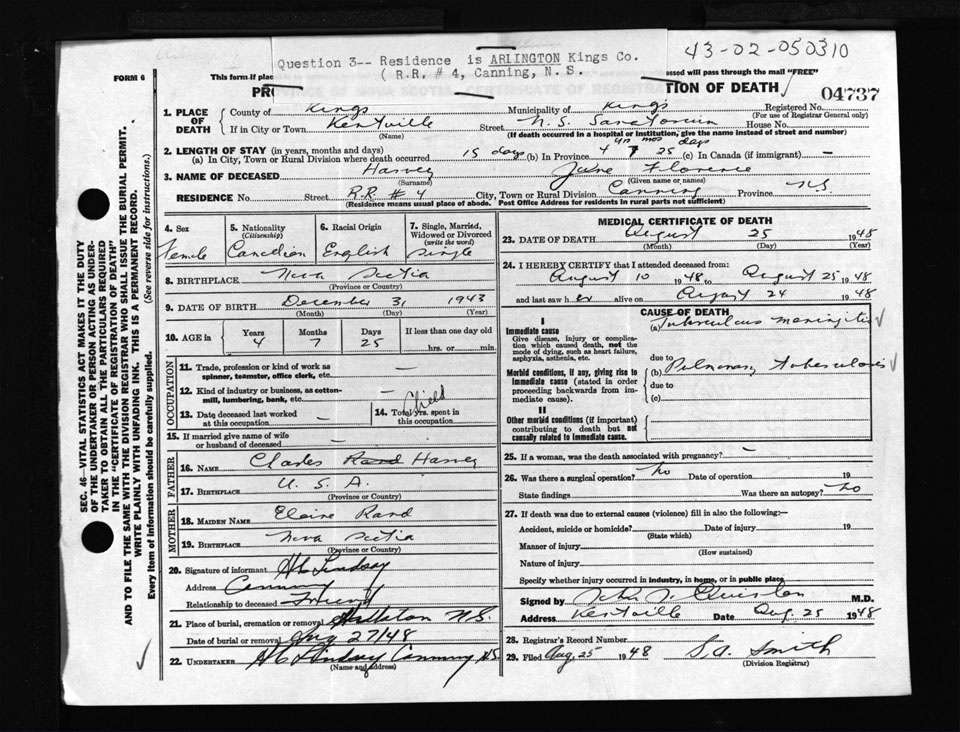 43-02-050310
Question 3-- Residence is ARLINGTON Kings Co.
( R.R. # 4, Canning, N. S.
FORM 6
This form if plac
ssed will pass through the mail "FREE"
PRO
TION OF DEATH
04737
1. PLACE OF DEATH
County of Kings
Municipality of Kings
Registered No.
(For use of Registrar General only)
If in City or Town Kentville
(Name)
Street N. S. Sanatorium House No.
(If death occurred in a hospital or institution, give the name instead of street and number)
2. LENGTH OF STAY (in years, months and days)
yrs mos days
(a) In City, Town or Rural Division where death occurred 15 days (b) In Province 4 7 25 (c) In Canada (if immigrant) —
3. NAME OF DECEASED Harvey June Florence
(Surname) (Given name or names)
RESIDENCE No. Street R.R. # 4 City, Town or Rural Division Canning Province NS
(Residence means usual place of abode. Post Office Address for residents in rural parts not sufficient)
4. Sex
Female
5. Nationality
(Citizenship)
Canadian
6. Racial Origin
English
7. Single, Married, Widowed or Divorced
(write the word)
Single
8. BIRTHPLACE Nova Scotia
(Province or Country)
9. DATE OF BIRTH December 31 1943
(Month) (Day) (Year)
10. AGE in
Years 4
Months 7
Days 25
If less than one day old
hrs. or min.
OCCUPATION
11. Trade, profession or kind of work as spinner, teamster, office clerk, etc. —
12. Kind of industry or business, as cotton-mill, lumbering, bank, etc. —
13. Date deceased last worked at this occupation —
14. Total yrs. spent in this occupation
Child
15. If married give name of wife or husband of deceased —
FATHER
16. NAME Charles Rand Harvey
17. BIRTHPLACE U. S. A.
(Province or Country)
MOTHER
18. MAIDEN NAME Elaine Rand
19. BIRTHPLACE Nova Scotia
(Province or Country)
20. Signature of informant H C Lindsay
Address Canning
Relationship to deceased Friend
21. Place of burial, cremation or removal N.S.
Date of burial or removal Aug 27/48
22. UNDERTAKER H C Lindsay Canning NS
(Name and address)
MEDICAL CERTIFICATE OF DEATH
23. DATE OF DEATH August 25 1948
(Month) (Day) (Year)
24. I HEREBY CERTIFY that I attended deceased from:
August 10 1948 to August 25 1948
and last saw her alive on August 24 1948
CAUSE OF DEATH
I
Immediate cause
Give disease, injury or complication which caused death, not the mode of dying, such as heart failure, asphyxia, asthenia, etc.
(a) Tuberculous meningitis
due to
Morbid conditions, if any, giving rise to immediate cause (stated in order proceeding backwards from immediate cause).
(b) Pulmonary tuberculosis
due to
(c)
II
Other morbid conditions (if important) contributing to death but not causally related to immediate cause.
25. If a woman, was the death associated with pregnancy? —
26. Was there a surgical operation? No Date of operation 19
State findings Was there an autopsy? No
27. If death was due to external causes (violence) fill in also the following:—
Accident, suicide or homicide? Date of injury 19
(State which)
Manner of injury
(How sustained)
Nature of injury
Specify whether injury occurred in industry, in home, or in public place
Signed by M.D.
Address Kentville Date Aug. 25 1948
28. Registrar's Record Number
29. Filed Aug. 25 1948 S. A. Smith
(Division Registrar)
SEC. 46—VITAL STATISTICS ACT MAKES IT THE DUTY
OF THE UNDERTAKER OR PERSON ACTING AS UNDER-
TAKER TO OBTAIN ALL THE PARTICULARS REQUIRED
IN THE "CERTIFICATE OF REGISTRATION OF DEATH"
AND TO FILE THE SAME WITH THE DIVISION REGISTRAR WHO SHALL ISSUE THE BURIAL PERMIT.
WRITE PLAINLY WITH UNFADING INK. THIS IS A PERMANENT RECORD.
Every item of information should be carefully supplied. (See reverse side for instructions.)